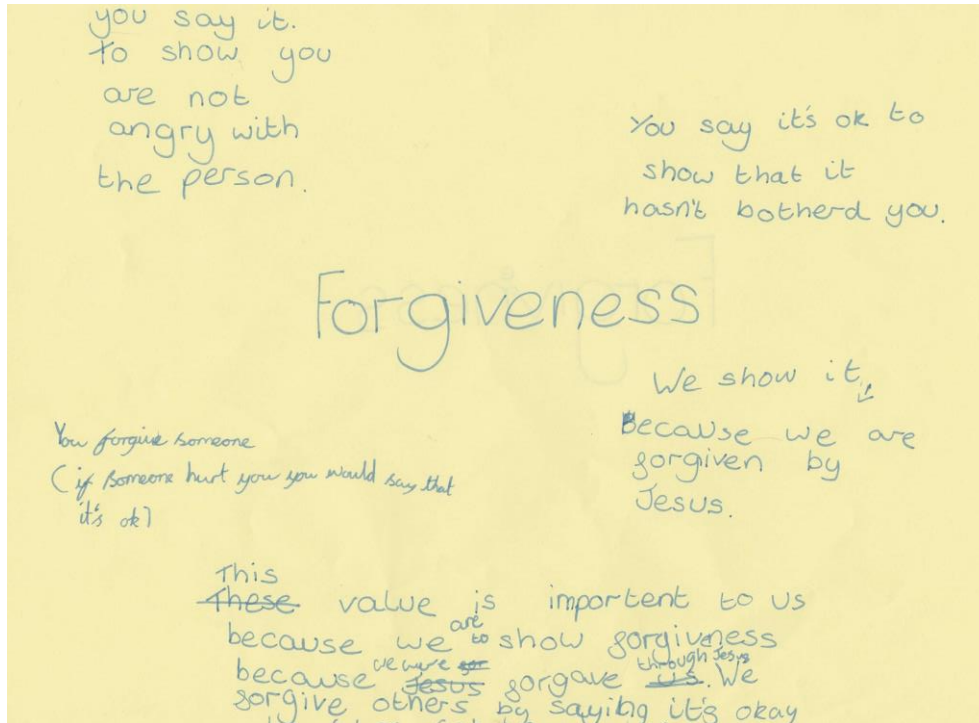 you say it.
to show you
are not
angry with
the person.
You say it's ok to
show that it
hasn't botherd you.
Forgiveness
We show it
Because we are
forgiven by
Jesus.
You forgive someone
(if someone hurt you you would say that
it's ok)
This
These value is importent to us
are
because we to show forgiveness
we were for through Jesus
because Jesus forgave us. We
forgive others by saying it's okay